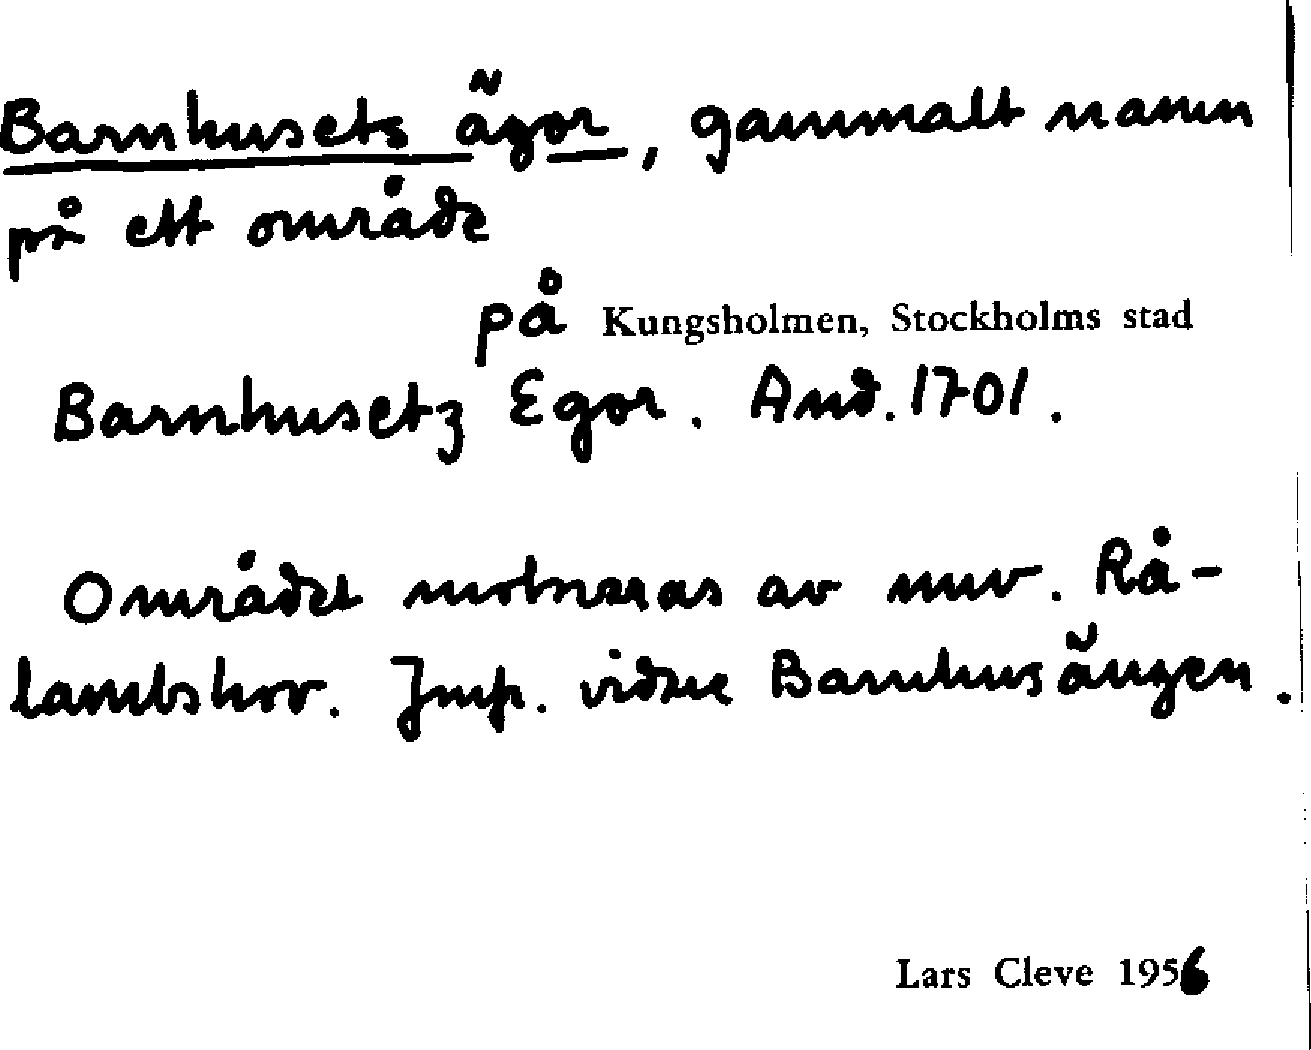 Barnhusets ägor, gammalt namn
på ett område
på Kungsholmen, Stockholms stad
Barnhusetz Egor. And. 1701.
Området motsvaras av nuv. Rå-
lambshov. Jmf. vidare Barnhusängen.
Lars Cleve 1956